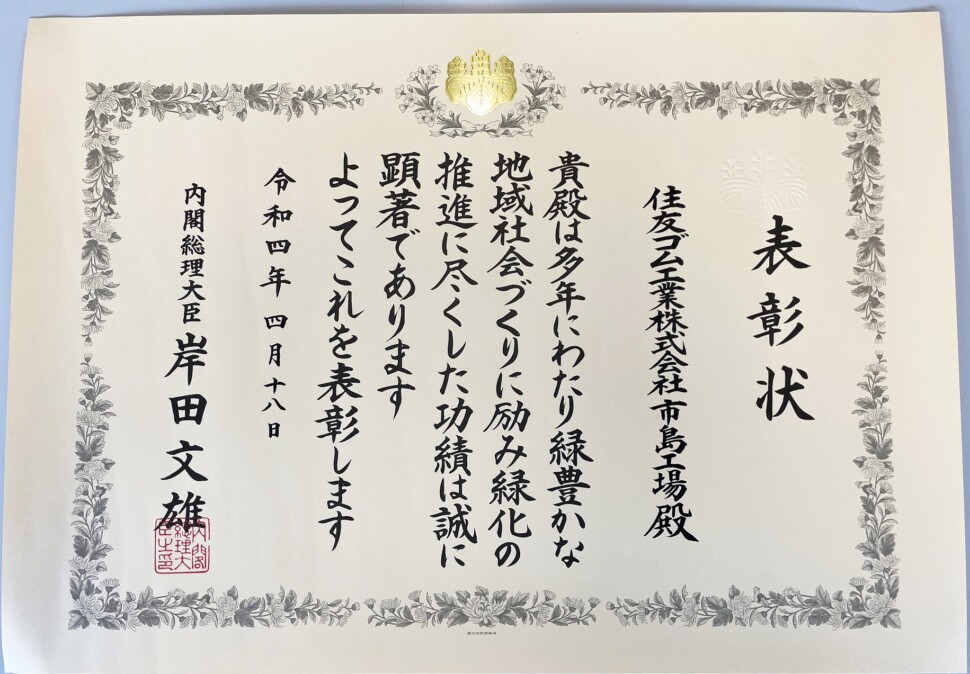 表彰状
住友ゴム工業株式会社 市島工場殿
貴殿は多年にわたり緑豊かな
地域社会づくりに励み緑化の
推進に尽くした功績は誠に
顕著であります
よってこれを表彰します
令和四年 四月十八日
内閣総理大臣 岸田文雄
内閣
総理大
臣之印